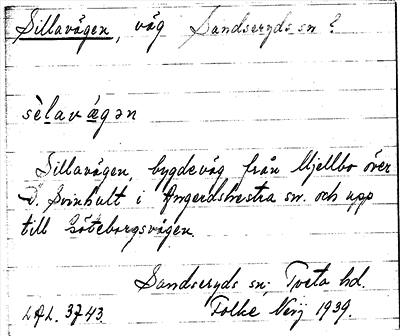 Sillavägen, väg Sandseryds sn?
sèlavä́gən
Sillavägen, bygdeväg från Mjellbo över
D. Svinhult i Angerdshestra sn. och upp
till Göteborgsvägen.
Sandseryds sn; Tveta hd.
LAL. 3743. Folke Neij 1939.